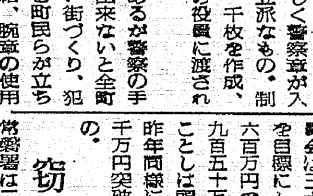 しく警察章が入
立派なもの。制
千枚を作成、
の役員に渡され
あるが警察の手
出来ないと全町
街づくり、犯
る町民らが立ち
腕章の使用
を目標に
六百万円の
九百五十万
ことしは
昨年同様に
千万円突破
の。
窃
常磐署は